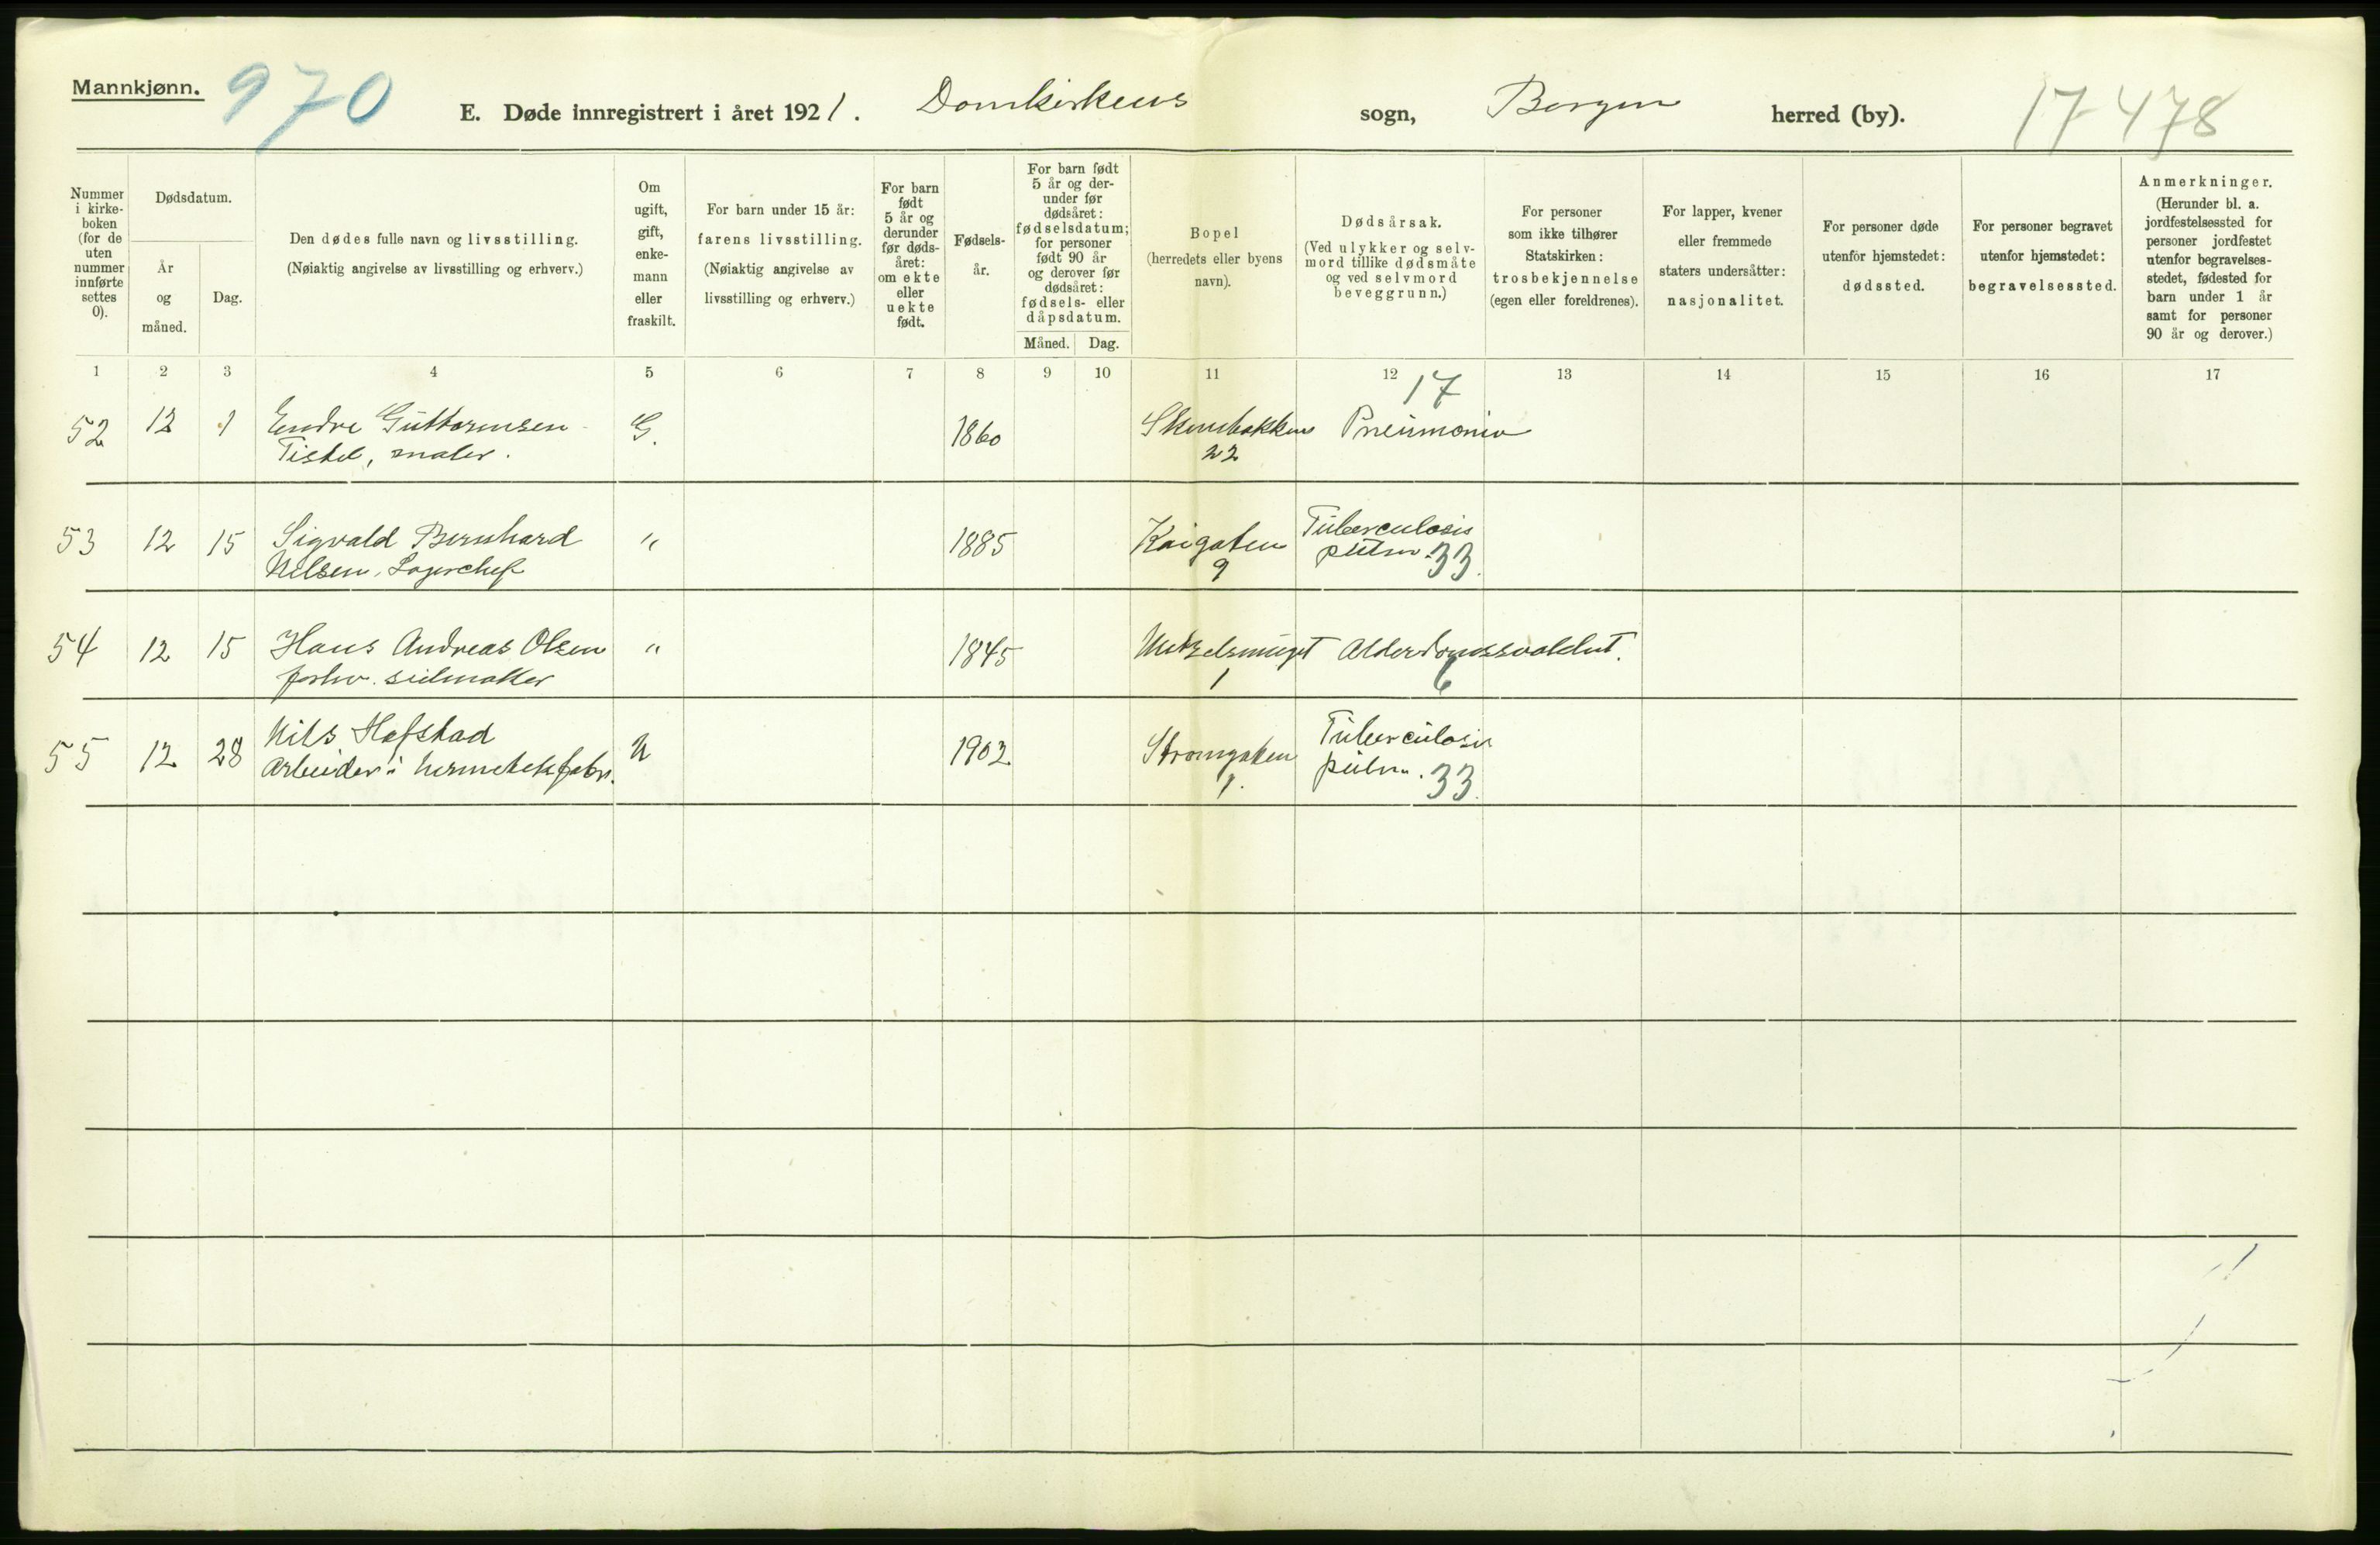 Mannkjønn.
970
E. Døde innregistrert i året 1921. Domkirkens sogn, Bergen herred (by).
17478
Nummer
i kirke-
boken
(for de
uten
nummer
innførte
settes
0).
Dødsdatum.
År
og
måned.
Dag.
Den dødes fulle navn og livsstilling.
(Nøiaktig angivelse av livsstilling og erhverv.)
Om
ugift,
gift,
enke-
mann
eller
fraskilt.
For barn under 15 år:
farens livsstilling.
(Nøiaktig angivelse av
livsstilling og erhverv.)
For barn
født
5 år og
derunder
før døds-
året:
om ekte
eller
uekte
født.
Fødsels-
år.
For barn født
5 år og der-
under før
dødsåret:
fødselsdatum;
for personer
født 90 år
og derover før
dødsåret:
fødsels- eller
dåpsdatum.
Måned. Dag.
Bopel
(herredets eller byens
navn).
Dødsårsak.
(Ved ulykker og selv-
mord tillike dødsmåte
og ved selvmord
beveggrunn.)
For personer
som ikke tilhører
Statskirken:
trosbekjennelse
(egen eller foreldrenes).
For lapper, kvener
eller fremmede
staters undersåtter:
nasjonalitet.
For personer døde
utenfor hjemstedet:
dødssted.
For personer begravet
utenfor hjemstedet:
begravelsessted.
Anmerkninger.
(Herunder bl. a.
jordfestelsessted for
personer jordfestet
utenfor begravelses-
stedet, fødested for
barn under 1 år
samt for personer
90 år og derover.)
1 2 3 4 5 6 7 8 9 10 11 12 13 14 15 16 17
17
52 12 1 Endre Guttormsen G. 1860 Pneumonia
Tistel, maler. 22
53 12 15 Sigvald Bernhard " 1885 Kaigaten Tuberculosis
Nilsen, Lagerchef 9 pulm. 33.
54 12 15 Hans Andreas Olsen " 1845 Alderdomssvakhet.
forhv. seilmaker 1 6
55 12 28 Nils Hofstad U 1902 Strømgaten Tuberculosis
Arbeider i hermetikkfabr. 1. pulm. 33.